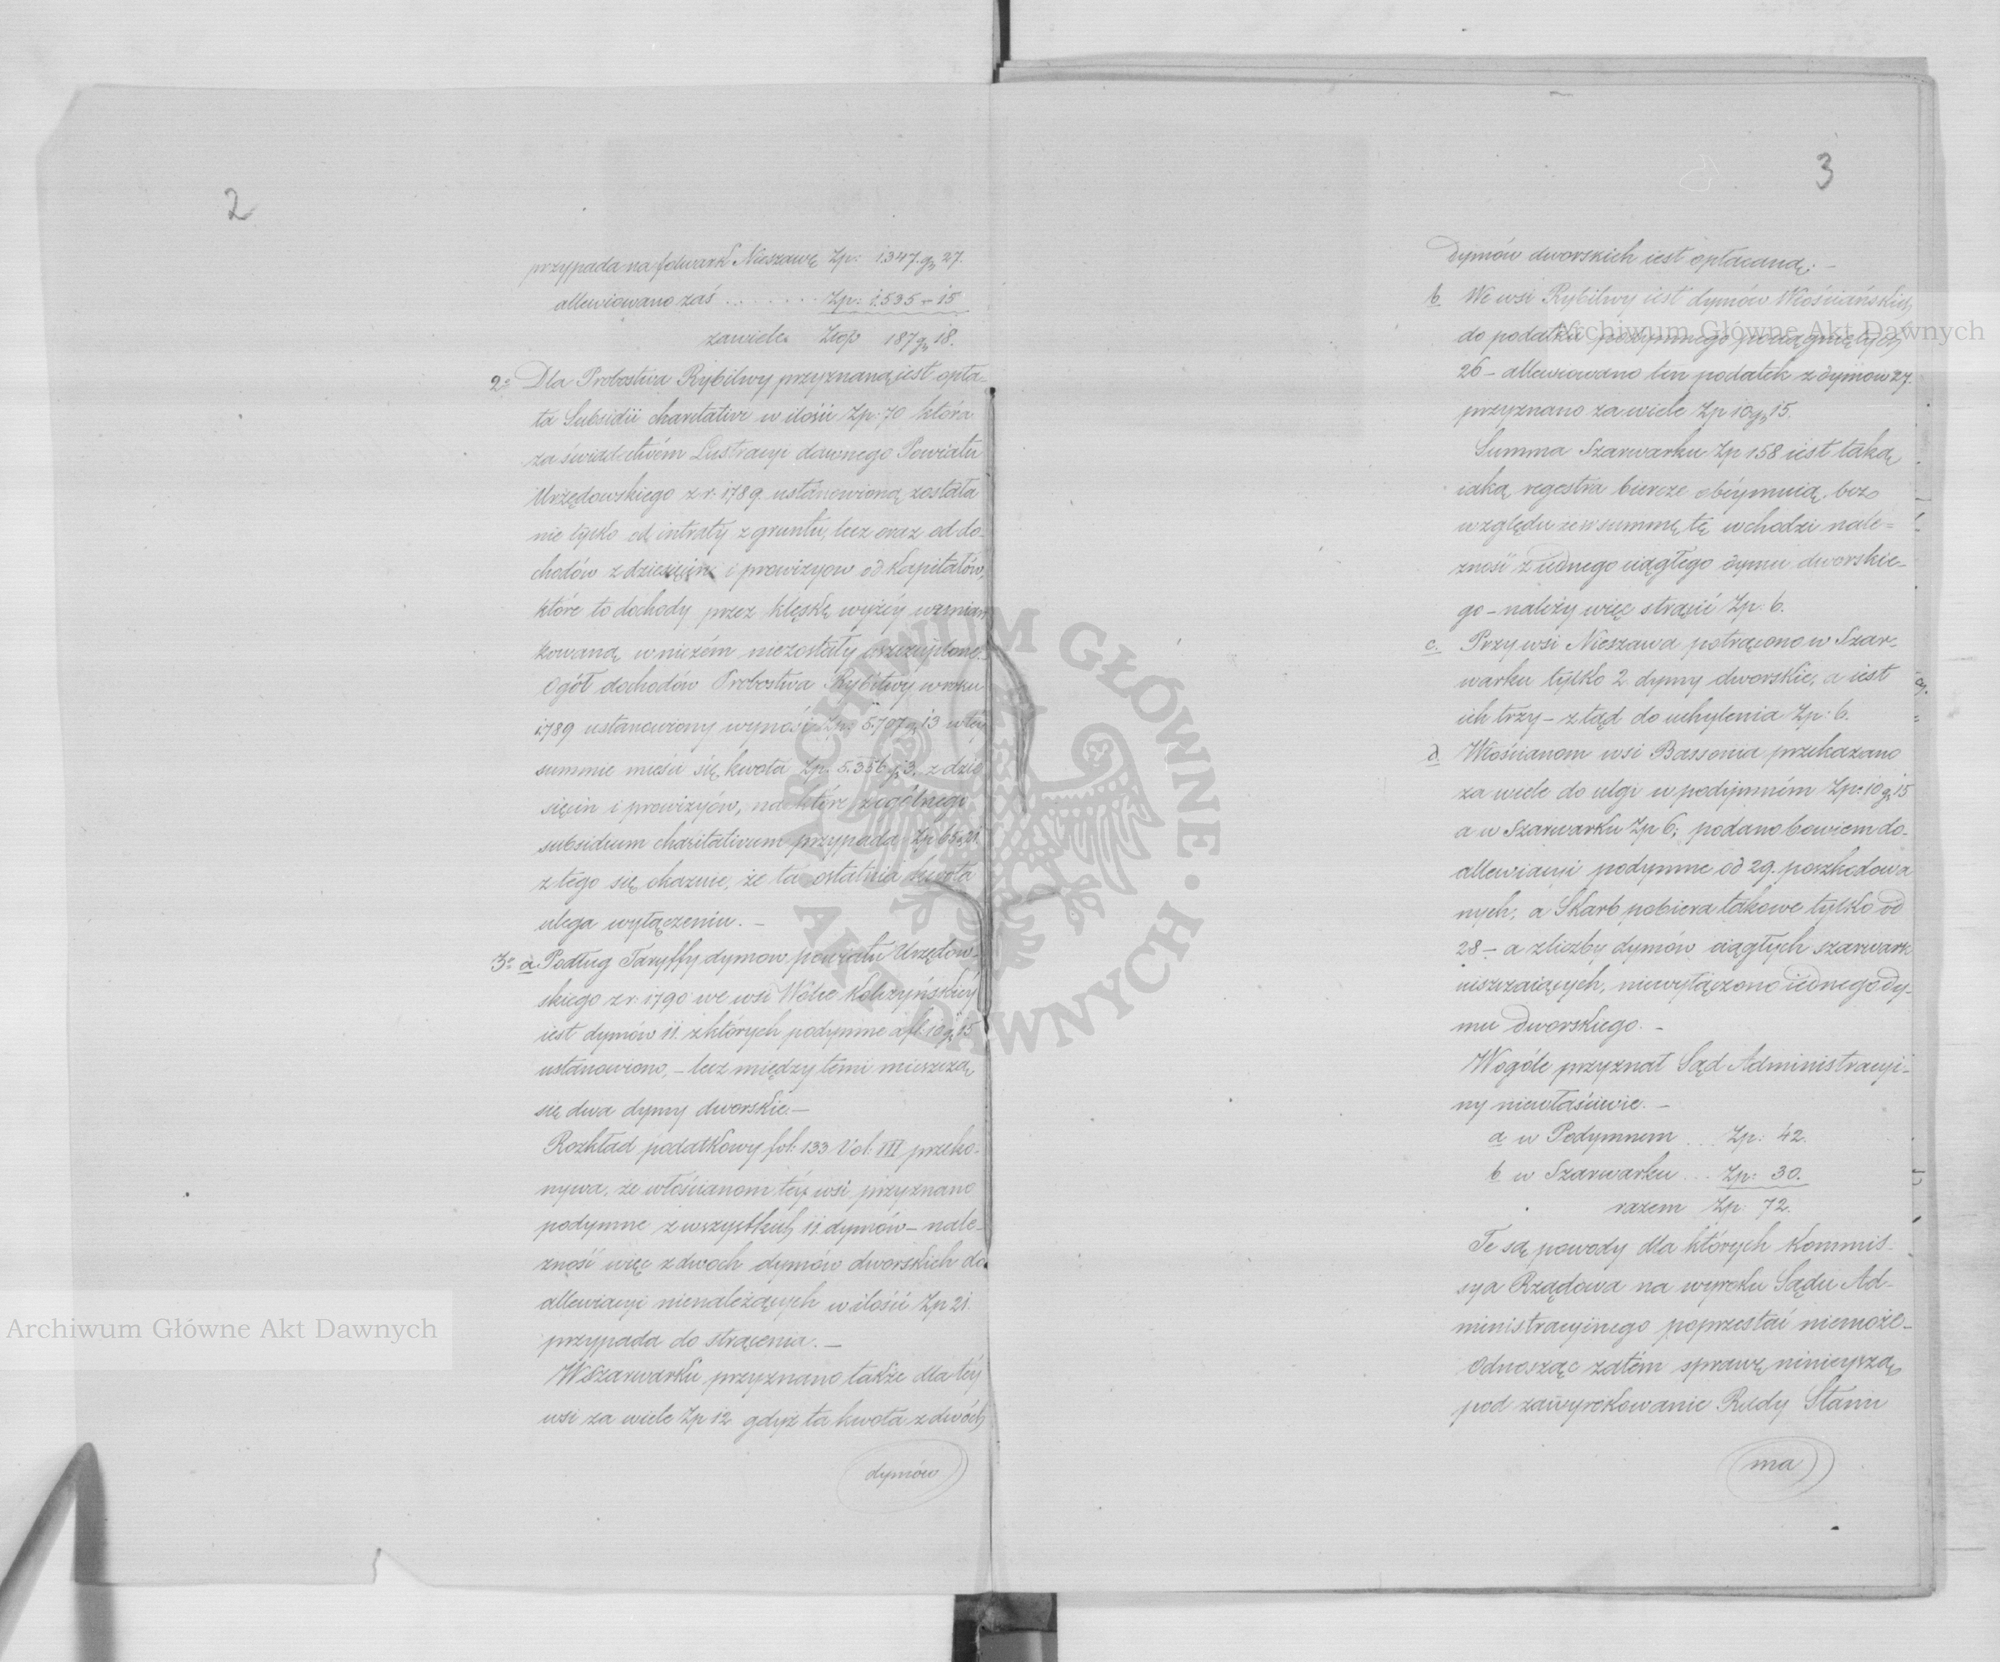 2
przypada na folwark Nieszawę Zp: 1347. g. 27.
allewiowano zaś . . . . . . Zp: 1.535 – 15
zawiele Złop 187 g. 18.
2o Dla Probostwa Rybitwy przyznaną iest opła-
ta Subsidii charitativi w ilości Zp: 70 która
za świadectwem Lustracyi dawnego Powiatu
Urzędowskiego z r. 1789 ustanowioną została
nie tylko od intraty z gruntu, lecz oraz od do-
chodów z dziesięcin i prowizyow od Kapitałów,
które to dochody przez klęskę wyżéy wzmian-
kowaną w niczém niezostały uszczuplone.
Ogół dochodów Probostwa Rybitwy w roku
1789 ustanowiony wynosi Zp: 5.707 g. 13 w téy
summie mieści się kwota Zp. 5.356 g. 3. z dzie
sięcin i prowizyów, na które z ogólnego
subsidium charitativum przypada Zp 65 g. 21
z tego się okazuie, że ta ostatnia kwota
ulega wyłączeniu. –
3o a. Podług Taryffy dymow powiatu Urzędow-
skiego z r. 1790 we wsi Wólce Kolczyńskiéy
iest dymów 11. z których podymne a fl. 10 g. 15
ustanowiono, – lecz między temi mieszczą
się dwa dymy dworskie. –
Rozkład podatkowy fol: 133 Vol: III przeko-
nywa, że włościanom téy wsi przyznano
podymne z wszystkich 11. dymów – nale-
żność więc z dwoch dymów dworskich do
allewiacyi nienależących w ilości Zp 21.
przypada do strącenia. –
W Szarwarku przyznano także dla téy
wsi za wiele Zp 12 gdyż ta kwota z dwóch
dymów
3
Dymów dworskich iest opłacaną. –
b. We wsi Rybitwy iest dymów Włościańskich
do podatku podymnego pociągniętych
26 – allewiowano ten podatek z dymow 27.
przyznano za wiele Zp 10 g. 15.
Summa Szarwarku Zp 158 iest taką
iaką regestra biercze obeymuią, bez
względu że w summę tę wchodzi nale=
żność z iednego ciągłego dymu dworskie-
go – należy więc strącić Zp. 6.
c. Przy wsi Nieszawa potrącono w Szar-
warku tylko 2 dymy dworskie, a iest
ich trzy – ztąd do uchylenia Zp. 6.
d Włościanom wsi Bassonia przekazano
za wiele do ulgi w podymném Zp: 10 g. 15
a w Szarwarku Zp 6; podano bowiem do-
allewiacyi podymne od 29. poszkodowa
nych, a Skarb pobiera takowe tylko od
28 – a z liczby dymów ciągłych szarwark
uiszczaiących, niewyłączono iednego dy-
mu Dworskiego. –
Wogóle przyznał Sąd Administracyi-
ny niewłaściwie. –
a w Podymnem . . . Zp: 42.
b w Szarwarku . . . Zp: 30.
razem Zp: 72.
Te są powody dla których Kommis-
sya Rządowa na wyroku Sądu Ad-
ministracyinego poprzestać niemoże –
Odnosząc zatém sprawę ninieyszą
pod zawyrokowanie Rady Stanu
ma
Archiwum Główne Akt Dawnych
Archiwum Główne Akt Dawnych
ARCHIWUM GŁÓWNE · AKT DAWNYCH ·